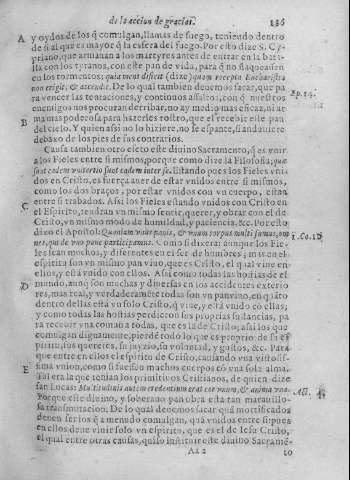 de la accion de gracias. 186
A y oydos de los q̃ comulgan, llamas de fuego, teniendo dentro
de si al que es mayor q̃ la esfera del fuego. Por esto dize S. Cy-
priano, que armauan a los martyres antes de entrar en la bata-
lla con los tyranos, con este pan de vida, para q̃ no flaqueassen
en los tormentos: quia mens deficit (dize) quam recepta Eucharistia
non erigit, & accendit. De lo qual tambien deuemos sacar, que pa
ra vencer las tentaciones, y continuos assaltos, con q̃ nuestros
Ep. 54.
enemigos nos procuran derribar, no ay medio mas eficaz, ni ar
B mas mas poderosas para hazerles rostro, que el recebir este pan
del cielo. Y quien assi no lo hiziere, no se espante, si anduuiere
debaxo de los pies de sus contrarios.
Causa tambien otro efeto este diuino Sacramento, q̃ es vnir
a los Fieles entre si mismos, porque como dize la Filosofia; quæ
sunt eadem vni tertio sunt eadem inter se. Estando pues los Fieles vni
dos en Cristo, es fuerça auer de estar vnidos entre si mismos,
como los dos braços, por estar vnidos con vn cuerpo, estan
C entre si trabados. Assi los Fieles estando vnidos con Cristo en
el Espiritu, tendran vn mismo sentir, querer, y obrar con el de
Cristo, vn mismo modo de humildad, y paciencia, &c. Por esto
dixo el Apostol: Quoniam vnus panis, & vnum corpus multi sumus, om
nes, qui de vno pane participamus. Como si dixera: aunque los Fie-
1. Co. 10
les sean muchos, y diferentes en el ser de hombres; mas en el
espiritu son vn mismo pan viuo, que es Cristo, el qual viue en
ellos, y està vnido con ellos. Assi como todas las hostias de el
D mundo, aunq̃ son muchas y diuersas en los accidentes exterio
res, mas real, y verdaderamẽte todas son vn pan viuo, en quãto
dentro dellas està vn solo Cristo, q̃ viue, y està vnido con ellas;
y como todas las hostias perdieron sus proprias sustancias, pa
ra recebir vna comun a todas, que es la de Cristo; assi los que
comulgan dignamente, pierdẽ todo lo que es proprio de su es
piritu, sus quereres, su juyzio, su voluntad, y gustos, &c. Para
que entre en ellos el espiritu de Cristo, causando vna vistosis-
E sima vnion, como si fuessen muchos cuerpos cõ vna sola alma.
Tal era la que tenian los primitiuos Cristianos, de quien dize
san Lucas: Multitudinis autem credentium erat cor vnum, & anima vna.
Act. 4.
Porque este diuino, y soberano pan obra esta tan marauillo-
sa transmutacion. De lo qual deuemos sacar quã mortificados
deuen ser los q̃ a menudo comulgan, quã vnidos entre si pues
en ellos deue viuir solo vn espiritu, que es el de Iesu Cristo,
el qual entre otras causas, quiso instituir este diuino Sacramẽ-
Aa 2 to